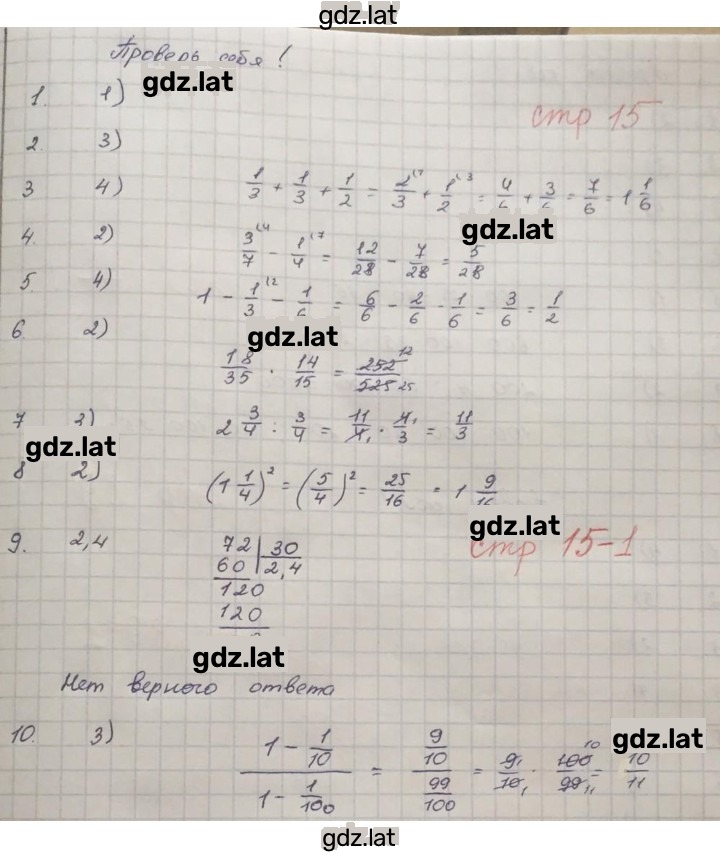 gdz.lat
Проверь себя!
gdz.lat
1. 1)
стр 15
2. 3)
3 4) 1/3 + 1/3 + 1/2 = 2/3 + 1/2 = 4/6 + 3/6 = 7/6 = 1 1/6
gdz.lat
4. 2) 3/7 - 1/4 = 12/28 - 7/28 = 5/28
5. 4) 1 - 1/3 - 1/6 = 6/6 - 2/6 - 1/6 = 3/6 = 1/2
gdz.lat
6. 2) 18/35 · 14/15 = 252/525 12/25
7 2) 2 3/4 : 3/4 = 11/4 · 4/3 = 11/3
gdz.lat
8 2) (1 1/4)² = (5/4)² = 25/16 = 1 9/16
gdz.lat
стр 15-1
9. 2,4 72 | 30
60 | 2,4
120
120
gdz.lat
Нет верного ответа
10. 3) (1 - 1/10)/(1 - 1/100) = (9/10)/(99/100) = 9/10 · 100/99 = 10/11
gdz.lat
gdz.lat